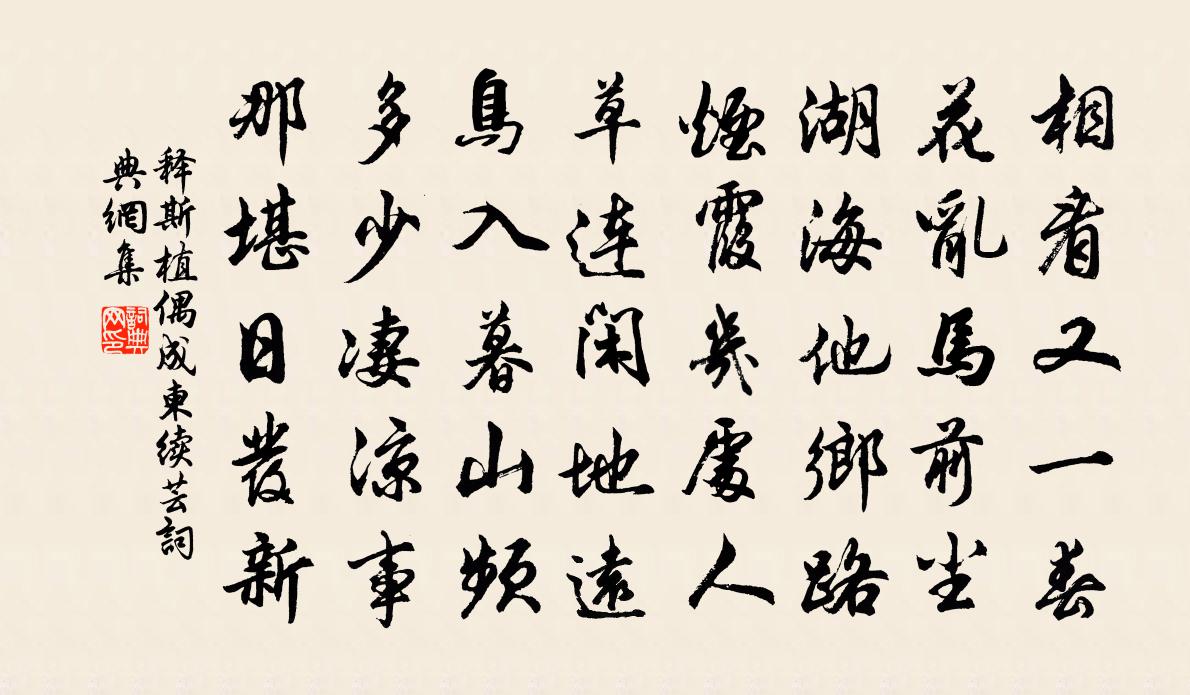 相看又一春
花亂馬前尘
湖海他鄉路
煙霞幾處人
草連閑地遠
鳥入暮山頻
多少凄凉事
那堪日發新
释斯植偶成東续芸詞
典網集
詞典网印